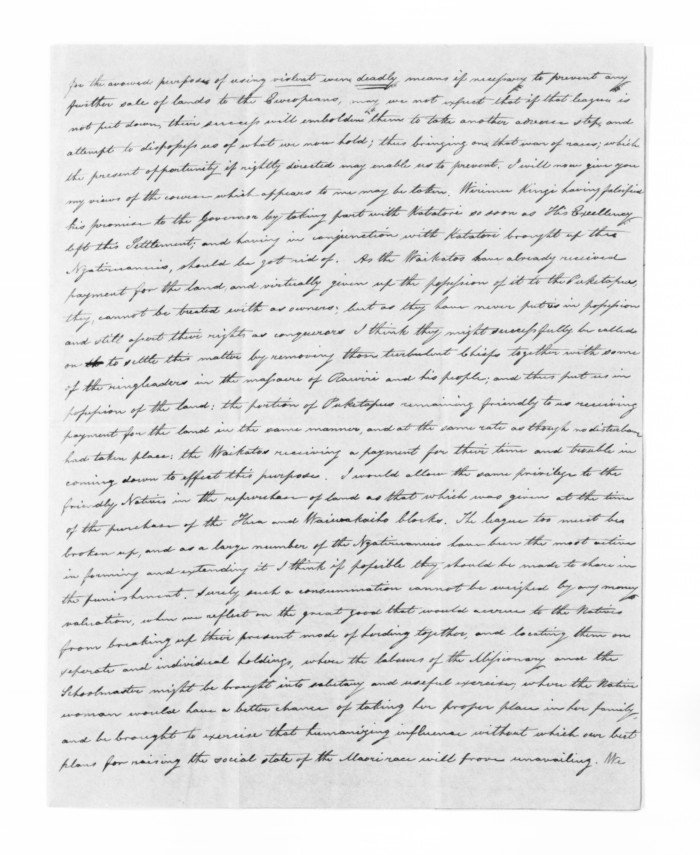 for the avowed purposes of using violent were deadly means if necessary to prevent any
further sale of lands to the Europeans, may we not expect that if that league is
not put down, their success will embolden them to take another adverse step, and
attempt to dispossess us of what we now hold; thus bringing on that war of races; which
the present opportunity if rightly directed may enable us to prevent. I will now give you
my views of the course which appears to me may be taken. Wirimu Kingi having falsified
his promise to the Governor by taking part with Katatori so soon as His Excellency
left this Settlement, and having in conjunction with Katatori brought up the
Ngatiruanuis, should be got rid of. As the Waikatos have already received
payment for the land, and virtually given up the possession of it to the Puketapus,
they, cannot be treated with as owners; but as they have never put us in possession
and still assert their rights as conquerors I think they might successfully be called
on to settle this matter by removing those turbulent Chiefs together with some
of the ringleaders in the massacre of Rawiri and his people; and thus put us in
possession of the land; the portion of Puketapus remaining friendly to us receiving
payment for the land in the same manner, and at the same rate as though no disturbance
had taken place; the Waikatos receiving a payment for their time and trouble in
coming down to effect this purpose. I would allow the same privilege to the
friendly Natives in the repurchase of land as that which was given at the time
of the purchase of the Hua and Waiwakaiho blocks. The league too must be
broken up, and as a large number of the Ngatiruanuis have been the most active
in forming and extending it I think if possible they should be made to share in
the punishment. Surely such a consummation cannot be weighed by any money
valuation, when we reflect on the great good that would accrue to the Natives
from breaking up their present mode of herding together, and locating them on
seperate and individual holdings, where the labours of the Missionary and the
Schoolmaster might be brought into salutary and useful exercise, where the Native
woman would have a better chance of taking her proper place in her family,
and be brought to exercise that humanizing influence without which our best
plans for raising the social state of the Maori race will prove unavailing. We